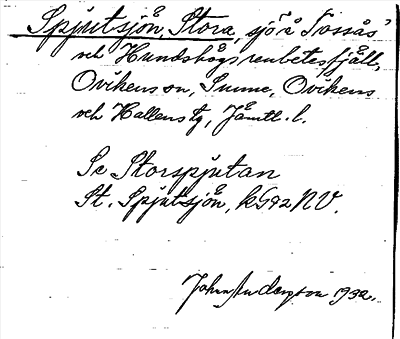 Spjutsjön, Stora, sjö å Tossås'
och Hundshögs renbetesfjäll,
Ovikens sn, Sunne, Ovikens
och Hallens tg, Jämtl. l.
Se Storspjutan
St. Spjutsjön, kG92NV.
John Anderson 1932.